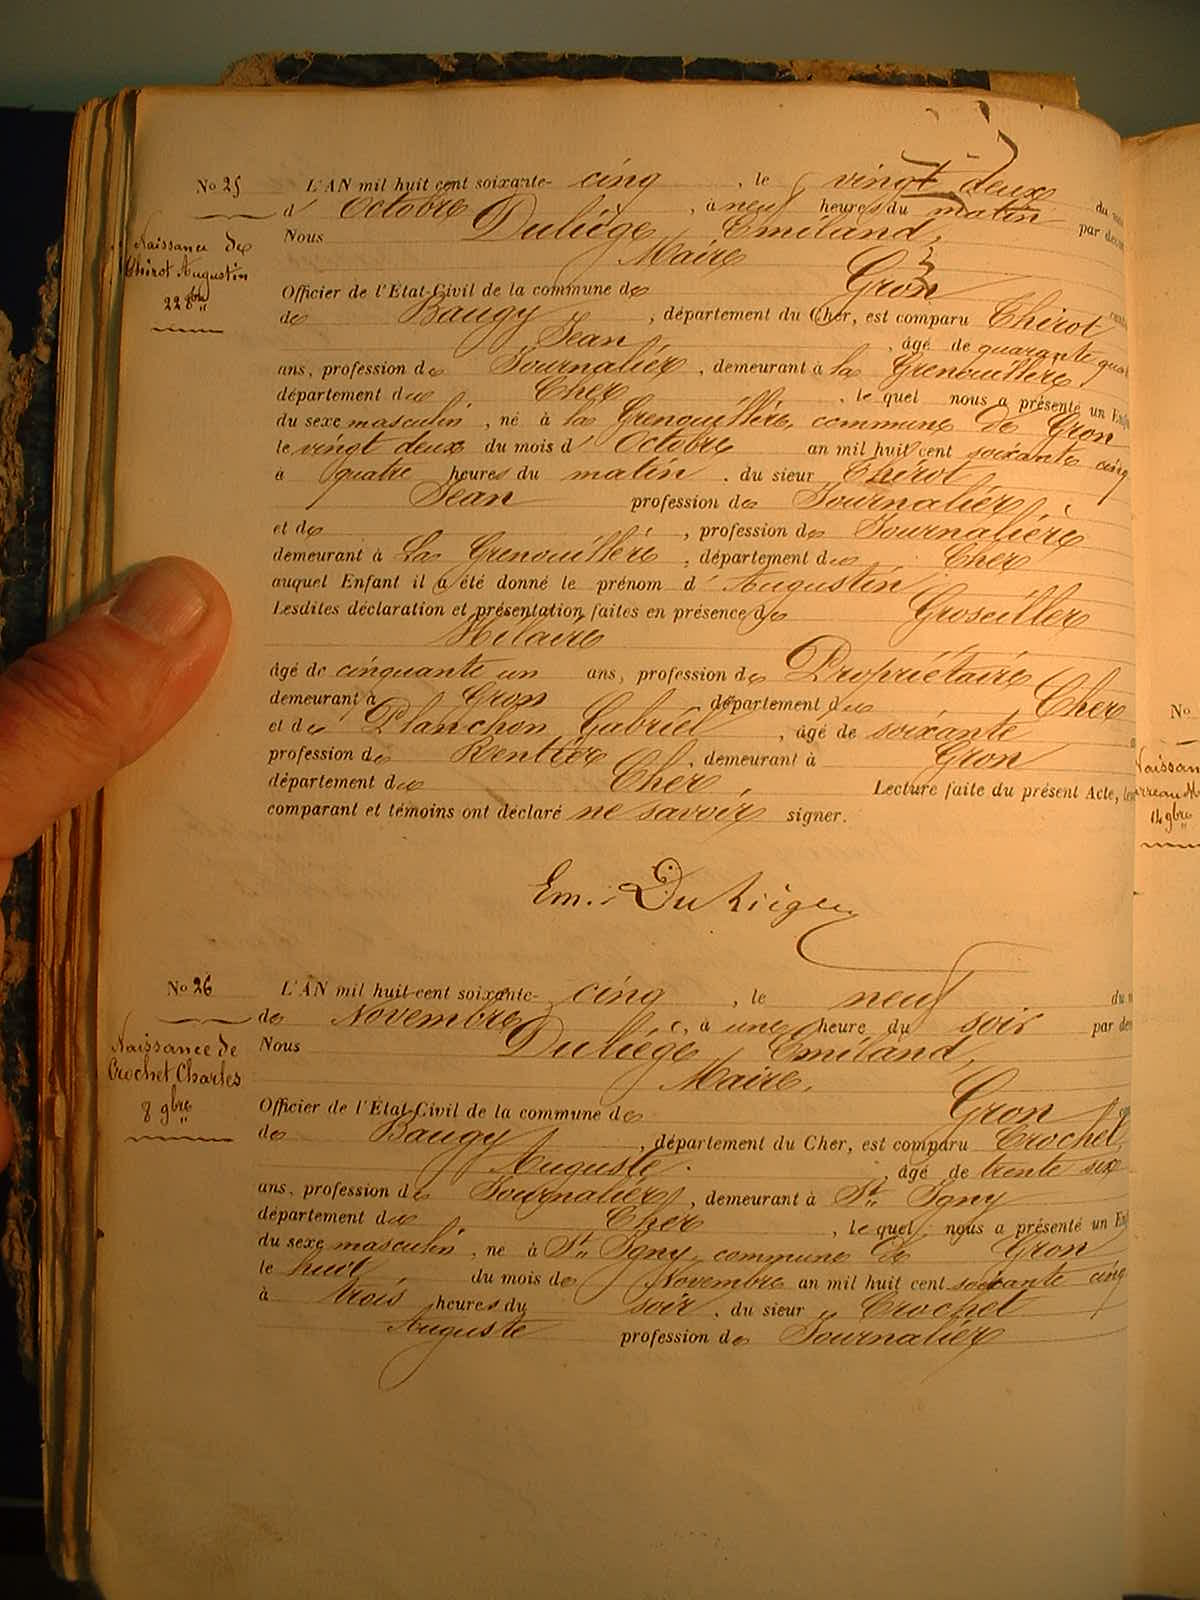 No 25
Naissance de
Chirot Augustin
22 8bre
L'AN mil huit cent soixante-cinq, le vingt deux du
d'Octobre, à neuf heures du matin par de
Nous Duliège Emiland,
Maire
Officier de l'État-Civil de la commune de Gron
de Baugy, département du Cher, est comparu Chirot
Jean, âgé de quarante
ans, profession de Journalier, demeurant à la Grenouillère
département de Cher, le quel nous a présenté un
du sexe masculin, né à la Grenouillère, commune de Gron
le vingt deux du mois d'Octobre an mil huit cent soixante cinq
à quatre heures du matin, du sieur Chérot
Jean profession de Journalier
et de , profession de Journalière
demeurant à La Grenouillère, département de Cher
auquel Enfant il a été donné le prénom d'Augustin
Lesdites déclaration et présentation faites en présence de Groseiller
Hilaire
âgé de cinquante un ans, profession de Propriétaire
demeurant à Gron département de Cher
et de Planchon Gabriel, âgé de soixante
profession de Rentier, demeurant à Gron
département de Cher Lecture faite du présent Acte, les
comparant et témoins ont déclaré ne savoir signer.
Em. Duliège
No 26
Naissance de
Crochet Charles
8 9bre
L'AN mil huit-cent soixante-cinq, le neuf du
de Novembre, à une heure du soir par de
Nous Duliège Emiland,
Maire,
Officier de l'État-Civil de la commune de Gron
de Baugy, département du Cher, est comparu Crochet
Auguste, âgé de trente six
ans, profession de Journalier, demeurant à St Igny
département de Cher, le quel nous a présenté un
du sexe masculin, né à St Igny, commune de Gron
le huit du mois de Novembre an mil huit cent soixante cinq
à trois heures du soir, du sieur Crochet
Auguste profession de Journalier
No
14 9bre